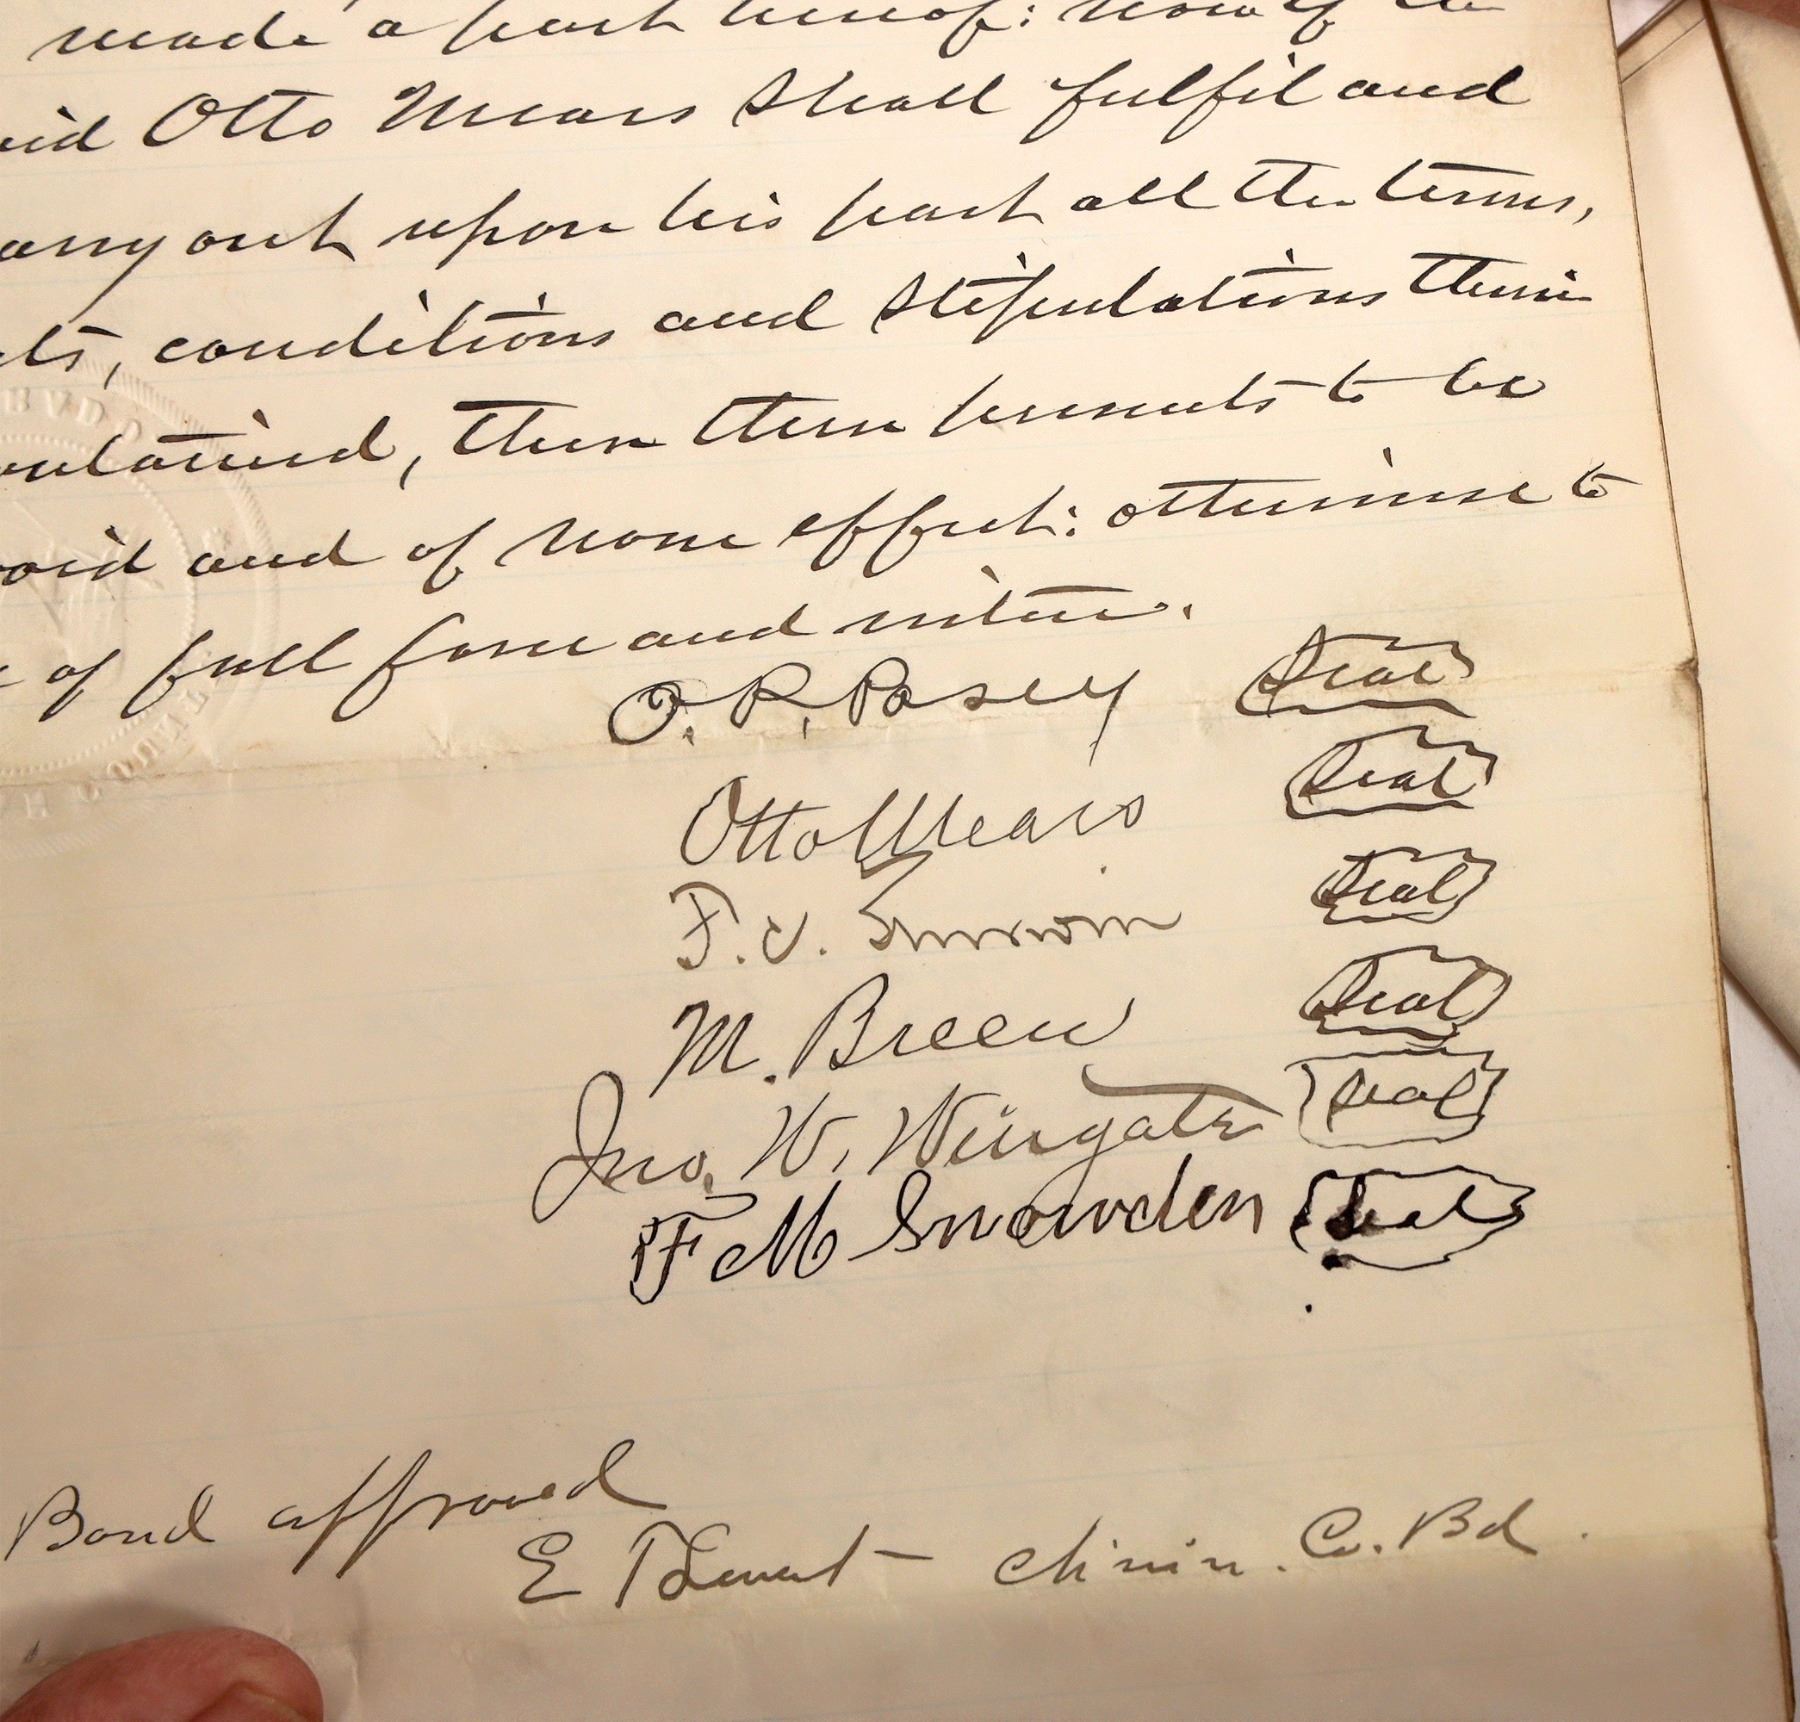 made a part hereof: now if the
said Otto Mears shall fulfil and
carry out upon his part all the terms,
conditions and stipulations therein
contained, then these presents to be
void and of none effect: otherwise to
of full force and virtue.
O. R. Posey Seal
Otto Mears Seal
F. C. Seal
M. Breen Seal
Jno. W. Wingate Seal
F M Snowden Seal
Bond approved
E T chmn. Co. Bd.